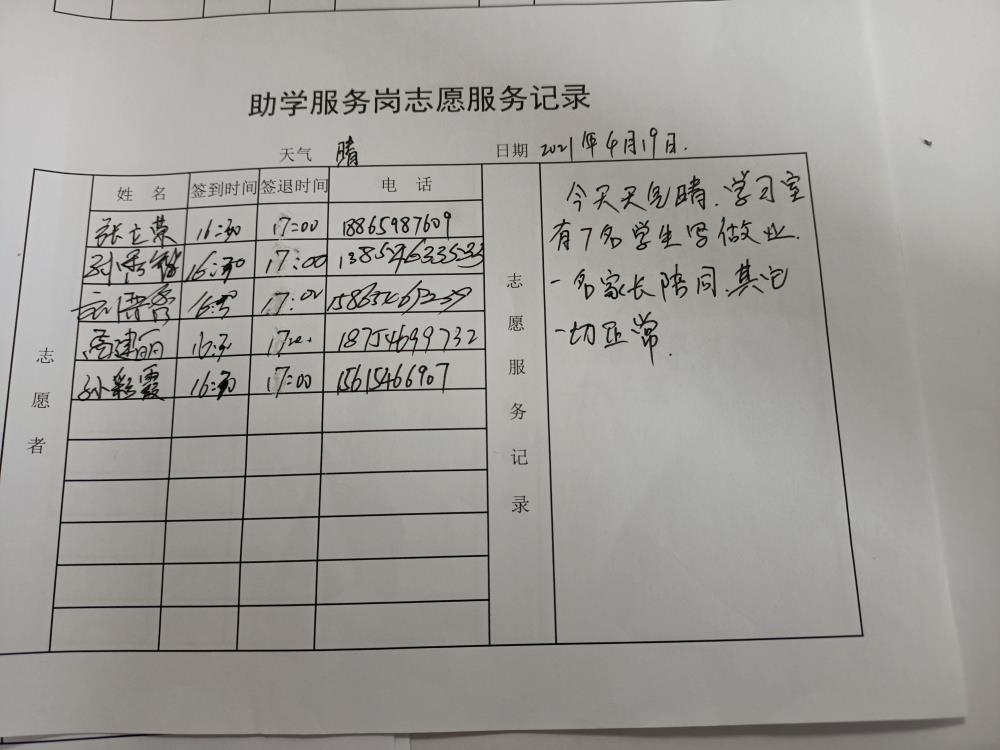 助学服务岗志愿服务记录
天气 晴 日期 2021年4月19日.
姓名 签到时间 签退时间 电话
张立荣 16:30 17:00 18865987609
16:30 17:00
17:00
周建丽 16:30 17:00 18754699732
孙彩霞 16:30 17:00 15615466907
志愿者
志愿服务记录
今天天气晴.学习室
有7名学生写做业.
一名家长陪同.其它
一切正常.